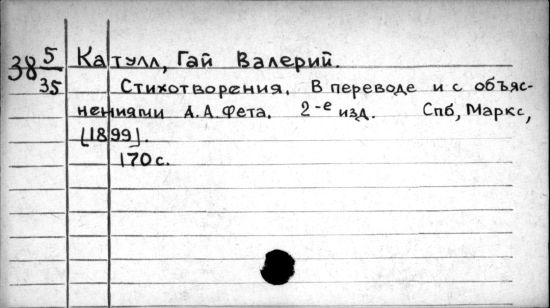 38 5/35
Катулл, Гай Валерий.
Стихотворения. В переводе и с объяс-
нениями А.А.Фета. 2-е изд. Спб, Маркс,
[1899].
170 с.